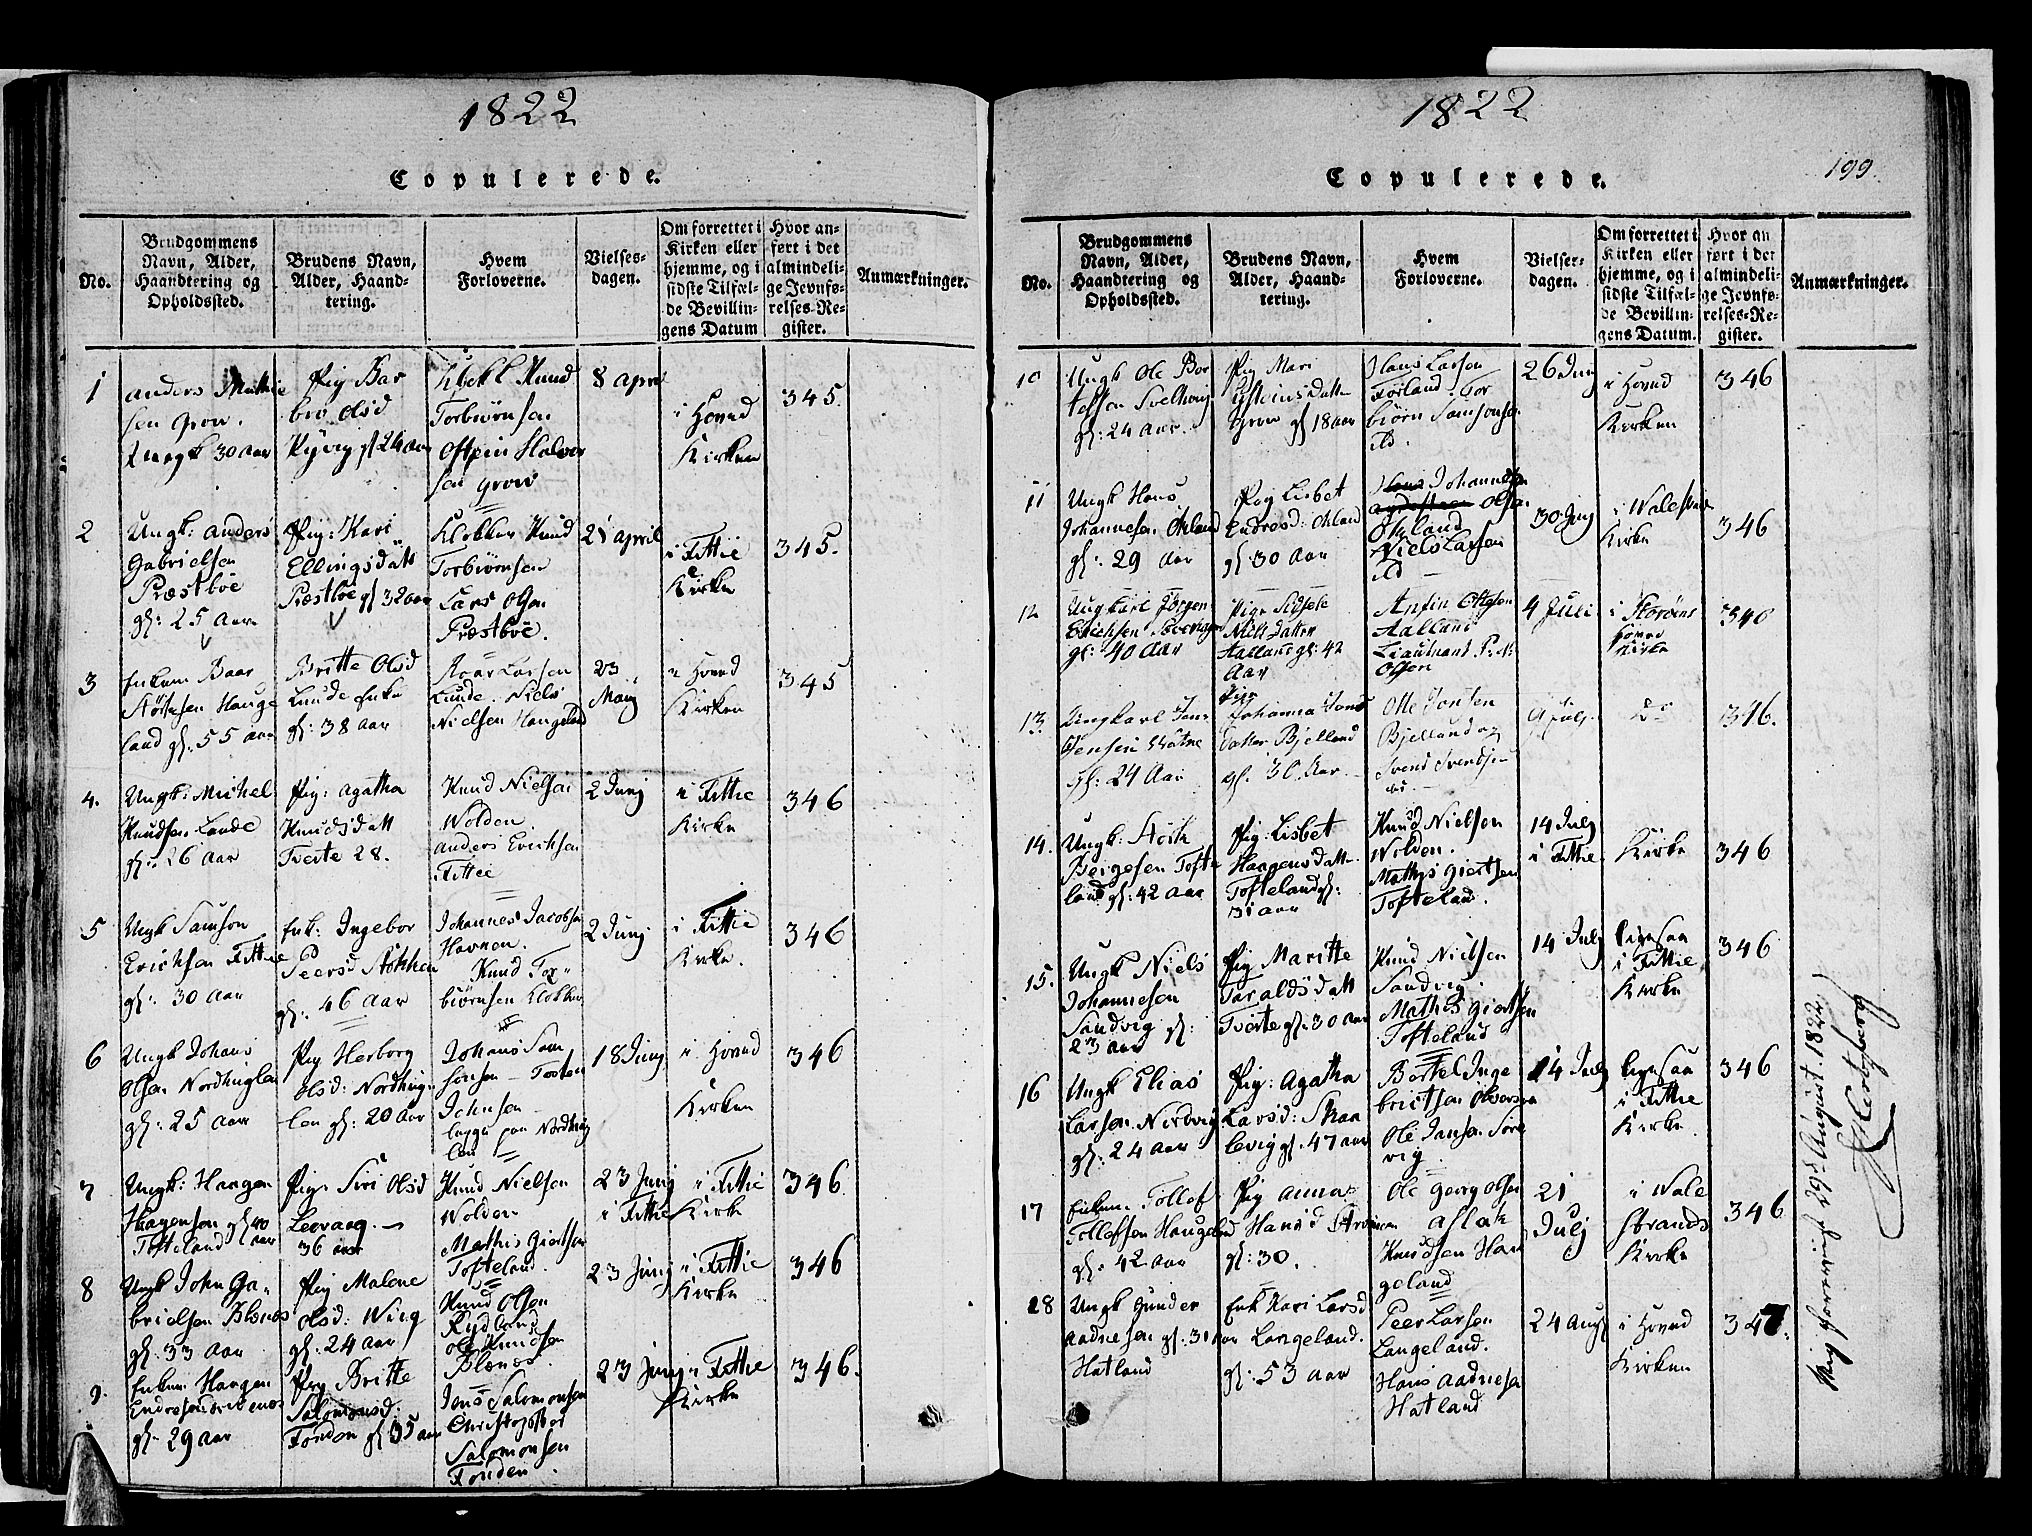 1822
Copulerede.
No.
Brudgommens
Navn, Alder,
Haandtering og
Opholdssted.
Brudens Navn,
Alder, Haand-
tering.
Hvem
Forloverne.
Vielses-
dagen.
Om forrettet i
Kirken eller
hjemme, og i
sidste Tilfæl-
de Bevillin-
gens Datum
Hvor an-
ført i det
almindeli-
ge Jevnfø-
relses-Re-
gister.
Anmærkninger.
1
anders Mathie
sen Grov.
30 aar
Pig Bar
bro Olsd
gl 24 aar
Knud
Torbiørnsen
Ostein Halvor
sen Grov
8 april
i Hovud
Kirken
345.
2
Ungk: anders
Gabrielsen
Præstbøe
gl: 25 Aar
Pig: Kari
Ellingsdatt
Præstbøe gl 32 aar
Klokker Knud
Torbiørnsen
Lars Olsen
Præstbøe.
21 april
i Fittie
Kirke
345.
3
Enkem Baar
Størksen Hauge
land gl: 55 aar
Britte Olsd
Lunde Enke
gl: 38 aar
Roar Larsen
Lunde. Niels
Nielsen Haugeland
23
Maij
i Hovud
Kirken
345
4.
Ungk: Michel
Knudsen Lande
gl: 26 aar
Pig: agatha
Knudsdatt
Tverte 28.
Knud Nielsen
Wolden
anders Erichsen
Fittie
2 Junj
i Fittie
Kirke
346
5
Ungk Samson
Erichsen Fittie
gl: 30 aar
Enk: Ingebor
Peersd Støkken
gl: 46 aar
Johannes Jacobsen
Havnen.
Knud Tor-
biørnsen Klokker
2 Junj
i Fittie
Kirke.
346
6
Ungk Johans
Olsen Nordhuglen
gl: 25 aar
Pig Herborg
Olsd: Nordhug-
len gl: 20 aar
Johans Sam
sonsen – Tosten
Johnsen –
begge paa Nordhug
len
18 Junj
i Hovud
Kirken
346
7
Ungk: Haagen
Haagensen gl 40
Tofteland aar
Pig: Siri Olsd
Leervaag. –
36 aar
Knud Nielsen
Wolden
Mathis Giertsen
Tofteland.
23 Junj
i Fittie
i Fittie
Kirke
346
8
Ungk John Ga-
brielsen Blenes
gl: 33 aar
Pig Malene
Olsd: Wiig
gl: 24 aar
Knud Olsen
Rydland
Ole Knudsen
Blenes.
23 Junj
i Fittie
Kirke
346
9.
Enkem Haagen
gl: 29 aar
Pig Britte
Salomonsd:
Fonden gl 35 aar
Jens Salomonsen
Christopher
Salomonsen
Fonden.
23 Junj
i Fittie
Kirke
346.
1822
199.
Copulerede.
No.
Brudgommens
Navn, Alder,
Haandtering og
Opholdssted.
Brudens Navn,
Alder, Haand-
tering.
Hvem
Forloverne.
Vielses-
dagen.
Om forrettet i
Kirken eller
hjemme, og i
sidste Tilfæl-
de Bevillin-
gens Datum.
Hvor an
ført i det
almindeli-
ge Jevnfø-
relses-Re-
gister.
Anmærkninger.
10
Ungk Ole Bor
telsen
gl: 24 aar.
Pig Mari
Grov gl 18 aar
Hans Larsen
Førland. Tor
biørn Samsonsen
ibd.
26 Junj
i Hovud
Kirken
346
11
Ungk Hans
Johannesen Økland
gl: 29 aar
Pig Lisbet
Endresd: Økland
gl: 30 aar
Johannesen
Olsen
Økland
Niels Larsen
ibd
30 Junj
Kirke
346
12
Ungkarl Jørgen
Erichsen
gl: 40 aar
Pige Sidsele
Niels datter
Aalland gl: 42
Aar
Anfin Ottesen
Aalland
Lieutnant
Olsen
4 Juli
i Storøens
Kirke
346
13.
Ungkarl Jens
Jensen
gl: 24 aar
Pige
Johanna Jons
datter Bjelland
gl: 30 Aar.
Ole Jonsen
Bjelland og
Svend Svendsen
Do
346.
14.
Ungk: Størk
Bergesen Tofte
land gl: 42 aar
Pig: Lisbet
Haagensdatt
Tofteland gl:
31 aar
Knud Nielsen
Wolden.
Mathis Giertsen
Tofteland.
14 Julj
i Fittie
Kirke
346
15.
Ungk Niels
Johannesen
Sandvig gl:
23 aar
Pig Maritte
Taraldsdatt
Tverte gl: 30 aar
Knud Nielsen
Sandvig.
Mathis Giertsen
Tofteland
14 Julj
ligesaa
i Fittie
Kirke
346
16
Ungk Elias
Larsen Nordvig
gl: 24 aar
Pig: Agatha
Larsd: Skaa
levig gl: 47 aar
Bertel Inge
brictsen
Ole Jansen Søre
vig.
14 Julj
ligesaa
i Fittie
Kirke
346
17
Enkem Tollef
Tollefsen Haugeland
gl: 42 aar
Pig Anna
Hansd
gl: 30.
Ole Georg Olsen
Aslak
Knudsen Hau
geland
21
Julj
i Wale
strands
Kirke
346
18
Ungk Gunder
Aadnesen gl: 31 aar
Hatland
Enk Kari Larsd
Langeland.
gl: 53 aar
Peer Larsen
Langeland.
Hans Aadnesen
Hatland
24 Augs
i Hovud
Kirken
347.
29 August. 1822